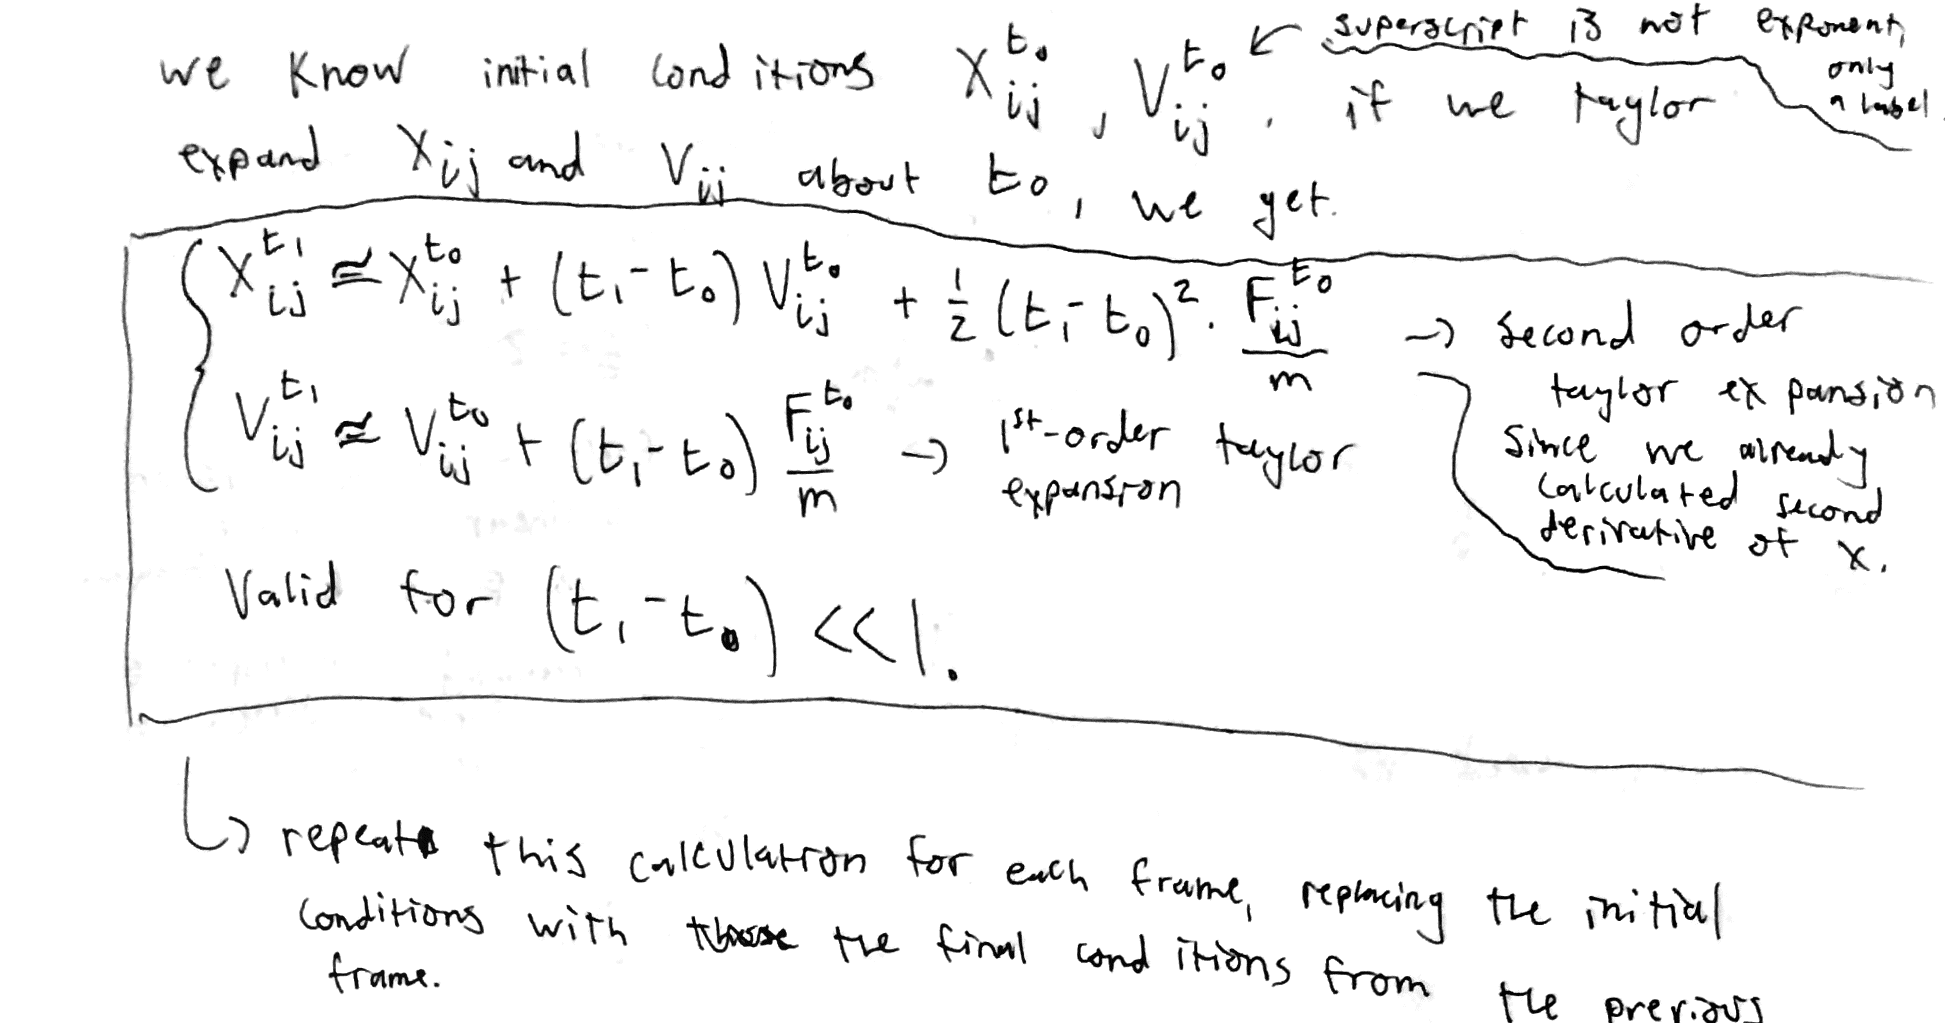 we know initial conditions X_{ij}^{t_0}, V_{ij}^{t_0}. if we taylor
← superscript is not exponent,
only
a label.
expand X_{ij} and V_{ij} about t_0, we get.
X_{ij}^{t_1} ≅ X_{ij}^{t_0} + (t_1 - t_0) V_{ij}^{t_0} + 1/2 (t_1 - t_0)^2 · F_{ij}^{t_0}/m → second order
taylor expansion
Since we already
calculated second
derivative of x.
V_{ij}^{t_1} ≅ V_{ij}^{t_0} + (t_1 - t_0) F_{ij}^{t_0}/m → 1st-order taylor
expansion
Valid for (t_1 - t_0) << 1.
↳ repeat this calculation for each frame, replacing the initial
conditions with the final conditions from the previous
frame.